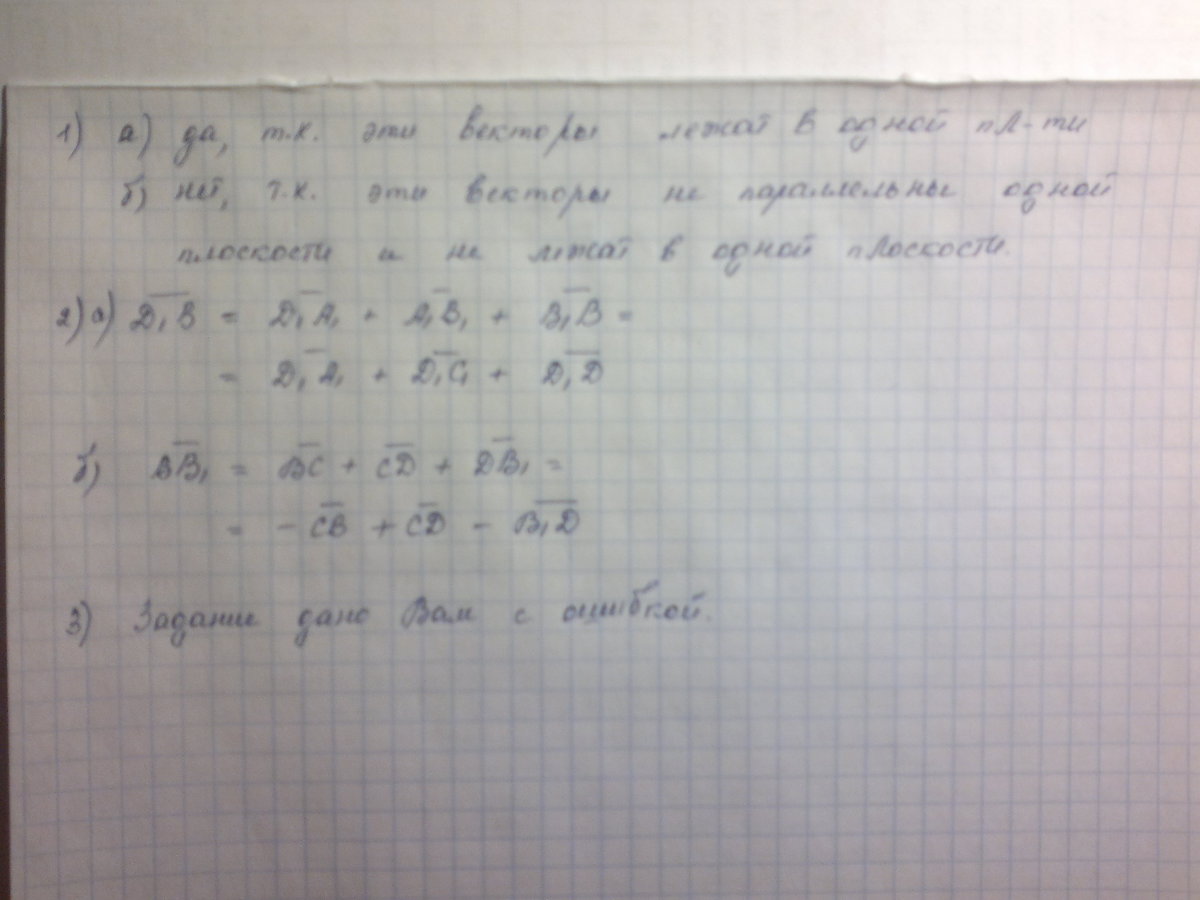 1) а) да, т.к. эти векторы лежат в одной пл-ти
б) нет, т.к. эти векторы не параллельны одной
плоскости и не лежат в одной плоскости.
2) а) D₁B = D₁A₁ + A₁B₁ + B₁B =
= D₁A₁ + D₁C₁ + D₁D
б) BB₁ = BC + CD + DB₁ =
= - CB + CD - B₁D
3) Задание дано Вам с ошибкой.